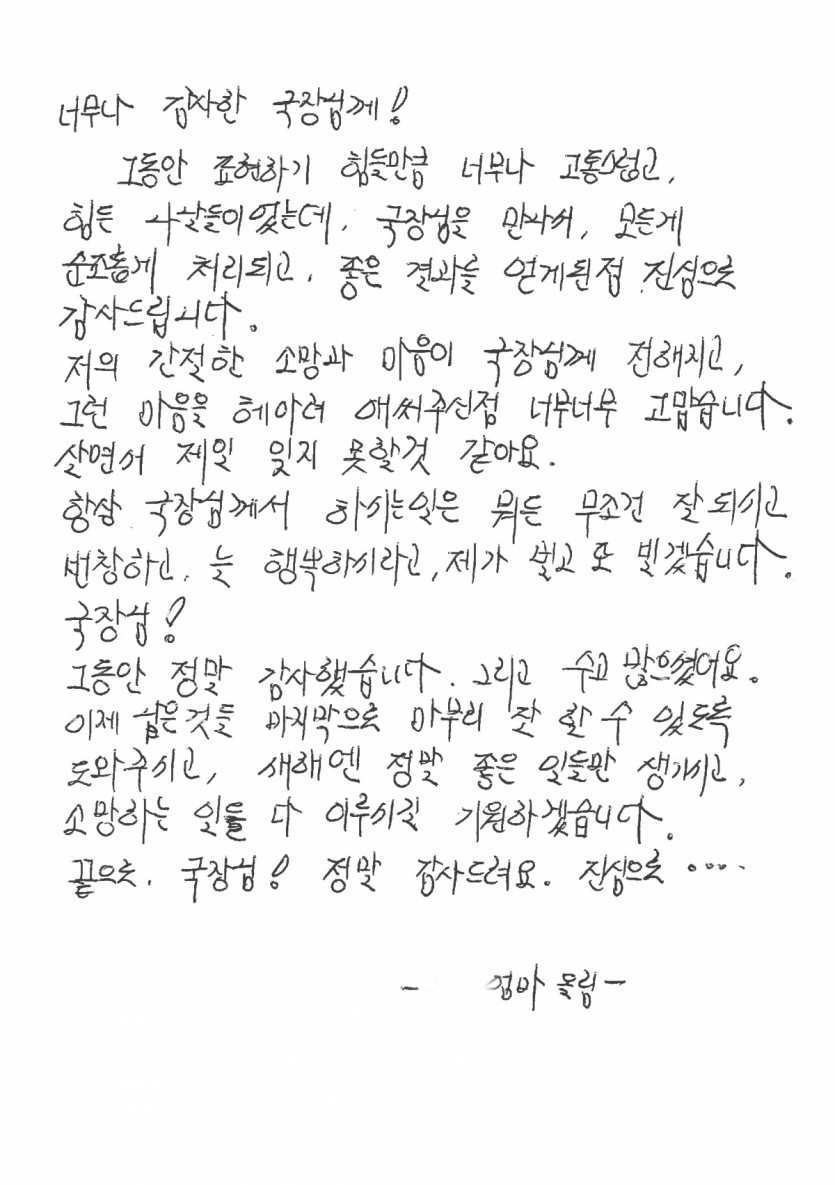 너무나 감사한 국장님께!
그동안 표현하기 힘들만큼 너무나 고통스럽고,
힘든 나날들이었는데, 국장님을 만나서, 모든게
순조롭게 처리되고, 좋은 결과를 얻게된점 진심으로
감사드립니다.
저의 간절한 소망과 마음이 국장님께 전해지고,
그런 마음을 헤아려 애써주신점 너무너무 고맙습니다.
살면서 제일 잊지 못할것 같아요.
항상 국장님께서 하시는일은 뭐든 무조건 잘되시고
번창하고, 늘 행복하시라고, 제가 빌고 또 빌겠습니다.
국장님!
그동안 정말 감사했습니다. 그리고 수고 많으셨어요.
이제 남은것들 마지막으로 마무리 잘 할 수 있도록
도와주시고, 새해엔 정말 좋은 일들만 생기시고,
소망하는 일들 다 이루시길 기원하겠습니다.
끝으로, 국장님! 정말 감사드려요. 진심으로 ....
- 엄마 올림 -